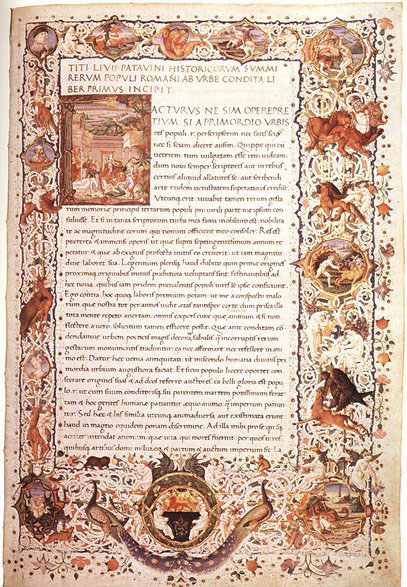 TITI LIVII PATAVINI HISTORICORVM SVMMI
RERVM POPVLI ROMANI AB VRBE CONDITA LI
BER PRIMVS INCIPIT.
ACTVRVS NE SIM OPEREPRE
TIVM SI A PRIMORDIO VRBIS
res populi perscripserim nec satis scio
nec si sciam dicere ausim. Quippe qui cu
ueterem tum uulgatam esse rem uideam
dum noui semper scriptores aut in rebus
certius aliquid allaturos se aut scribendi
arte rudem uetustatem superaturos credunt
Vtcunq erit iuuabit tamen rerum gesta
rum memoriae principis terrarum populi pro uirili parte me ipsum con
suluisse. Et si in tanta scriptorum turba mea fama in obscuro est nobilita
te ac magnitudine eorum qui nomini officient meo consoler. Res est
praeterea et immensi operis ut quae supra septingentesimum annum re
petatur et quae ab exiguis profecta initiis eo creuerit ut iam magnitu
dine laboret sua. Legentium plerisq haud dubito quin prime origines
proximaq originibus minus praebitura uoluptatis sint festinantibus ad
haec noua quibus iam pridem praeualentis populi uires se ipse conficiunt
Ego contra hoc quoq laboris premium petam ut me a conspectu malo
rum quae nostra tot per annos uidit aetas tantisper certe dum prisca illa
tota mente repeto auertam omnis expers curae quae animum etsi non
flectere a uero sollicitum tamen efficere possit. Quae ante conditam co
dendamue urbem poeticis magis decora fabulis q incorruptis rerum
gestarum monumentis traduntur ea nec affirmare nec refellere in ani
mo est. Datur haec uenia antiquitati ut miscendo humana diuinis pri
mordia urbium augustiora faciat. Et si cui populo licere oportet con
secrare origines suas et ad deos referre auctores ea belli gloria est popu
lo r. ut cum suum conditorisq sui parentem martem potissimum ferat
tam et hoc gentes humanae patiantur aequo animo q imperium patiun
tur. Sed haec et his similia utcunq animaduersa aut existimata erunt
haud in magno equidem ponam discrimine. Ad illa mihi pro se quisq
acriter intendat animum quae uita qui mores fuerint per quos uiros
quibusq artibus domi militiaeq et partum et auctum imperium sit La